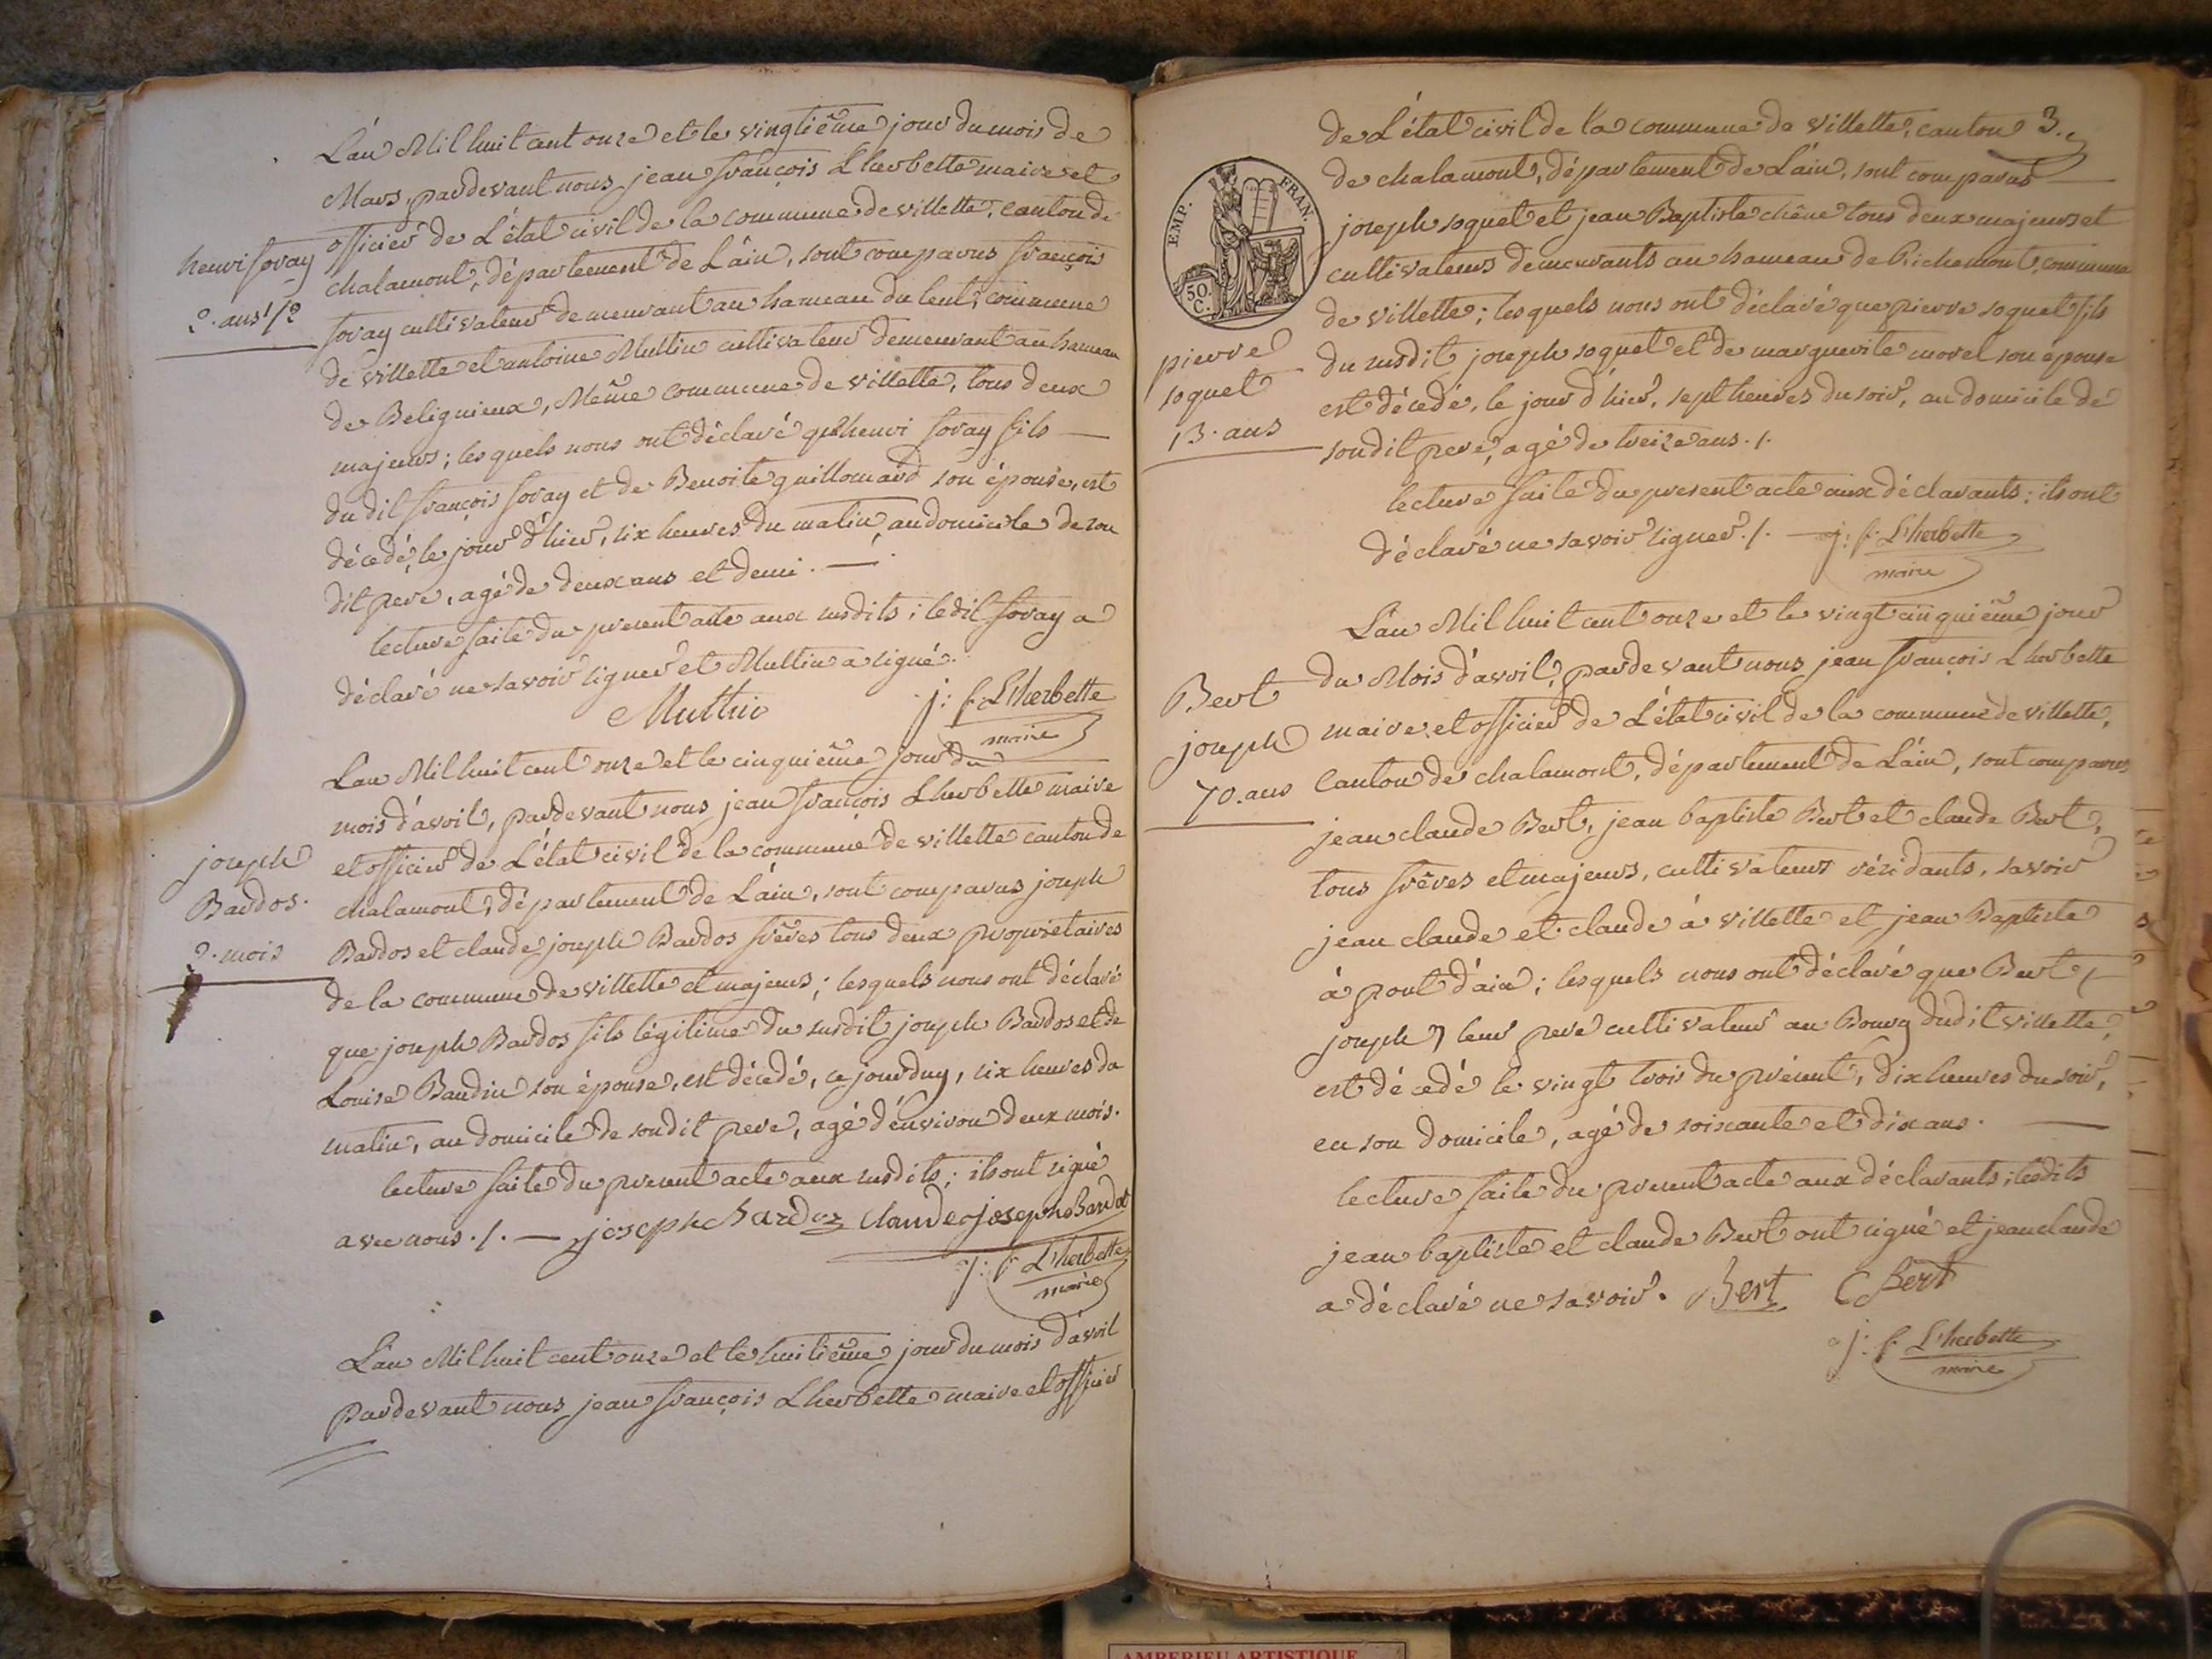 L'an Mil huit cent onze et le vingtième jour du mois de
Mars, pardevant nous jean françois Lherbette maire et
officier de L'état civil de la commune de villette, canton de
chalamont, département de L'ain, sont comparus françois
foray cultivateur demeurant au hameau du lent, commune
de villette et antoine Muttin cultivateur demeurant au hameau
de Belignieux, Même commune de villette, tous deux
majeurs; lesquels nous ont déclaré qu'henri foray fils
dudit françois foray et de Benoite guillomard son épouse, est
décedé, le jour d'hier, six heures du matin, au domicile de son
dit pere, agé de deux ans et demi.
lecture faite du present acte aux susdits; ledit foray a
déclaré ne savoir signer et Muttin a signé.
Muttin j: f: L'herbette
maire
henri foray
2. ans 1/2
L'an Mil huit cent onze et le cinquième jour du
mois d'avril, pardevant nous jean françois Lherbette maire
et officier de L'état civil de la commune de villette canton de
chalamont, département de L'ain, sont comparus joseph
Bardos et claude joseph Bardos frères tous deux propriétaires
de la commune de villette et majeurs; lesquels nous ont déclaré
que joseph Bardos fils légitime du susdit joseph Bardos et de
Louise Baudin son épouse, est décedé, ce jourduy, six heures du
matin, au domicile de sondit pere, agé d'environ deux mois.
lecture faite du present acte aux susdits; ils ont signé
avec nous ./. joseph Bardoz claude joseph Bardot
j: f: L'herbette
maire
joseph
Bardos.
2. mois
L'an Mil huit cent onze et le huitième jour du mois d'avril
pardevant nous jean françois Lherbette maire et officier
3.
de L'état civil de la commune de villette, canton
de chalamont, département de L'ain, sont comparus
joseph soquet et jean Baptiste chêne tous deux majeurs et
cultivateurs demeurants au hameau de Richemont, commune
de villette; lesquels nous ont déclaré que pierre soquet fils
du susdit joseph soquet et de marguerite morel son épouse
est décedé, le jour d'hier, sept heures du soir, au domicile de
sondit pere, agé de treize ans ./.
lecture faite du present acte aux déclarants; ils ont
déclaré ne savoir signer ./. j: f: L'herbette
maire
EMP. FRAN.
50.
C.
pierre
soquet
13. ans
L'an Mil huit cent onze et le vingt cinquième jour
du Mois d'avril, pardevant nous jean françois Lherbette
maire et officier de L'état civil de la commune de villette,
Canton de chalamont, département de L'ain, sont comparus
jean claude Bert, jean baptiste Bert et claude Bert,
tous frères et majeurs, cultivateurs résidants, savoir
jean claude et claude à villette et jean Baptiste
à pont d'ain; lesquels nous ont déclaré que Bert
joseph, leur pere cultivateur au Bourg dudit villette,
est décedé le vingt trois du présent, dix heures du soir,
en son domicile, agé de soixante et dix ans.
lecture faite du present acte aux déclarants; lesdits
jean baptiste et claude Bert ont signé et jean claude
a déclaré ne savoir. Bert C Bert
j: f: L'herbette
maire
Bert
joseph
70. ans
AMBERIEU ARTISTIQUE